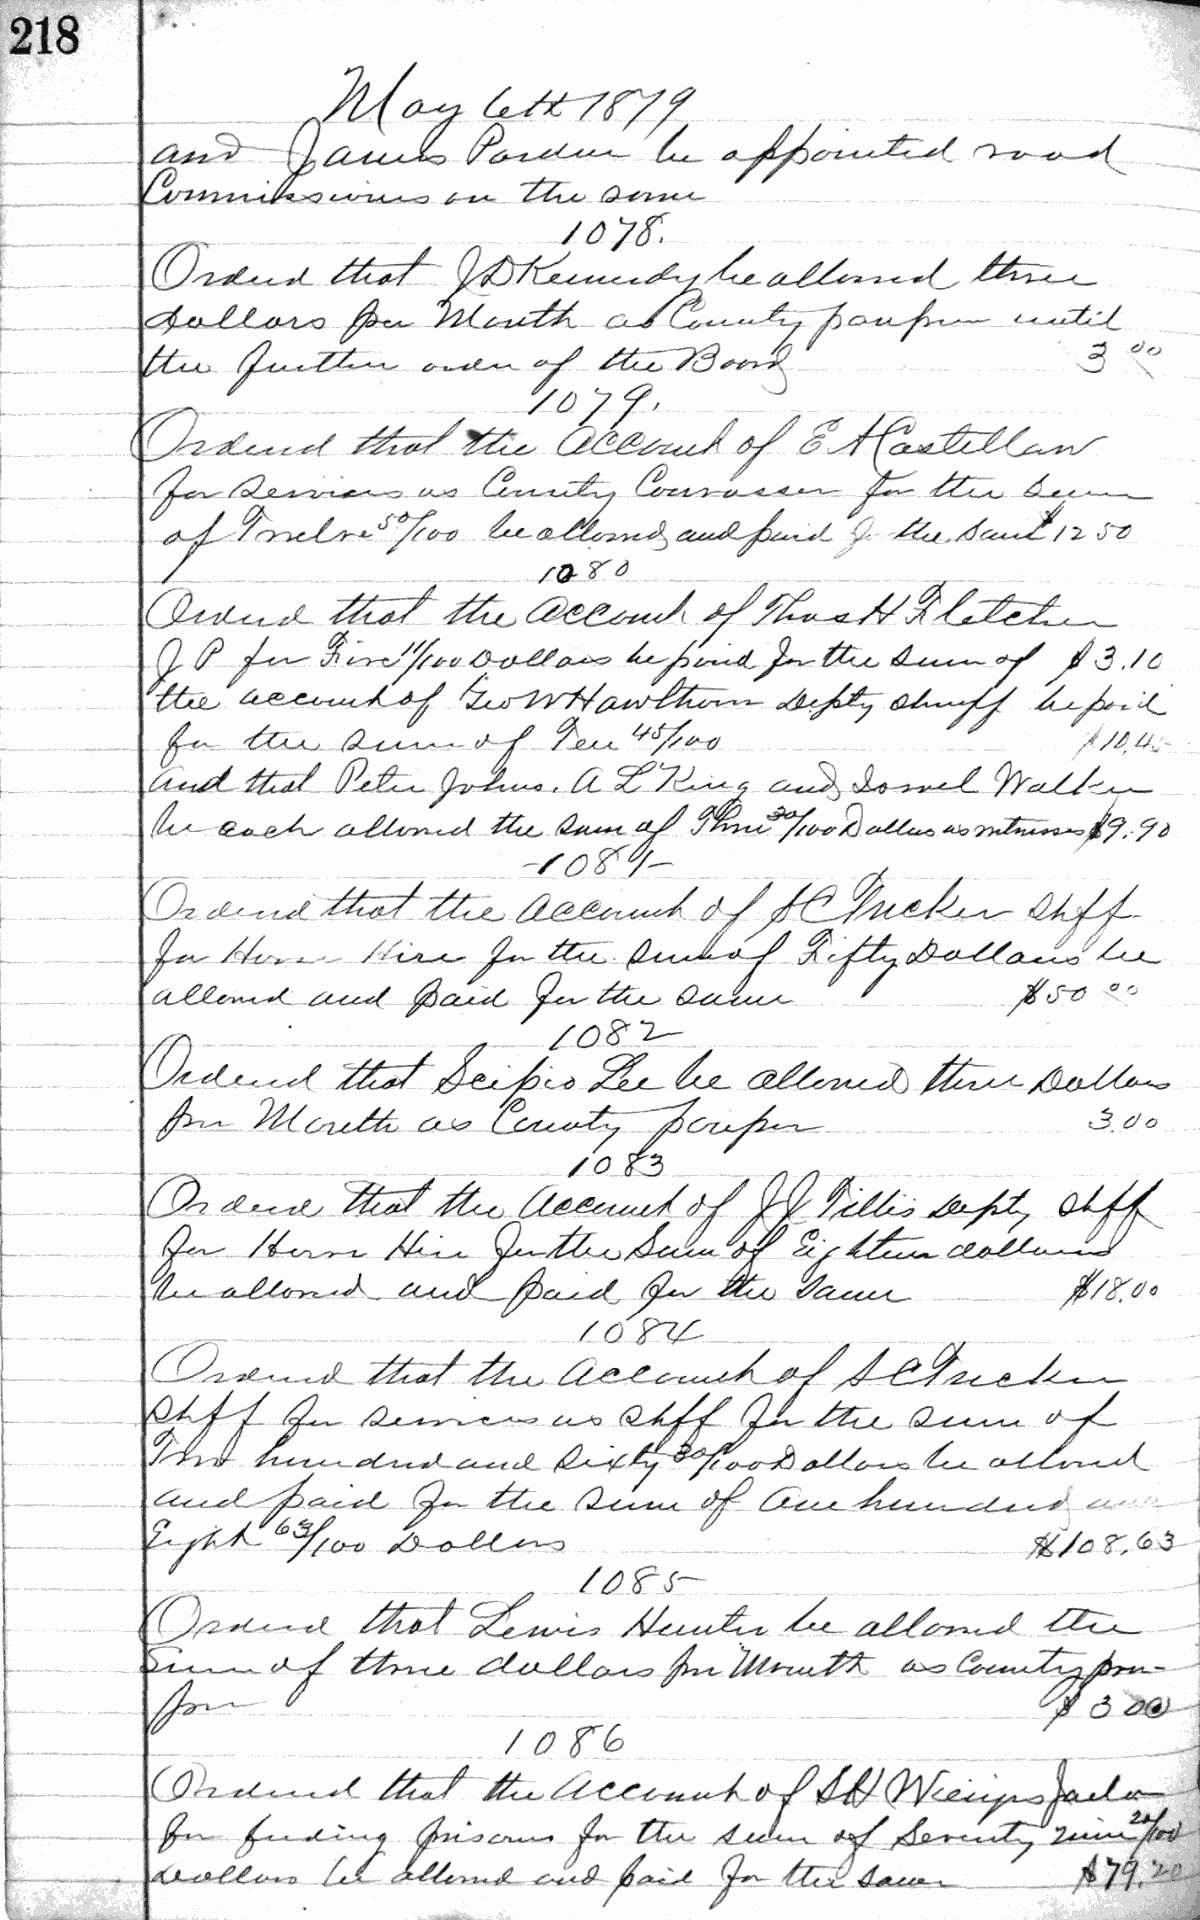 218
May 6th 1879
and James Pardue be appointed road
Commissioners on the same
1078.
Ordered that J D Kennedy be allowed three
dollars per Month as County pauper until
the further order of the Board 3 00
1079.
Ordered that the account of E A Castellaw
for services as County Convasser for the sum
of Twelve 50/100 be allowed and paid for the same $12 50
1080
Ordered that the account of Thos H Fletcher
J P for Five 11/100 Dollars be paid for the sum of $3.10
the account of Geo W Hawthorn Depty Sheriff be paid
for the sum of Ten 45/100 $10.45
and that Peter Johns. A L King and Walker
be each allowed the sum of Three 30/100 Dollars as witnesses $9.90
-1081-
Ordered that the account of S C Tucker Shff
for Horse Hire for the sum of Fifty Dollars be
allowed and paid for the same $50 00
1082
Ordered that Scipio Lee be allowed three Dollars
per Month as County pauper 3.00
1083
Ordered that the account of J J Tillis Depty Shff
for Horse Hire for the Sum of Eighteen dollars
be allowed and paid for the same $18.00
1084
Ordered that the account of S C Tucker
Shff for services as Shff for the sum of
Two hundred and sixty 30/100 Dollars be allowed
and paid for the sum of One hundred and
Eight 63/100 Dollars $108.63
1085
Ordered that Lewis Hunter be allowed the
Sum of three dollars per Month as County pau-
per $3 00
1086
Ordered that the account of S H Jailor
for feeding prisoners for the sum of Seventy nine 20/100
Dollars be allowed and paid for the same $79.20